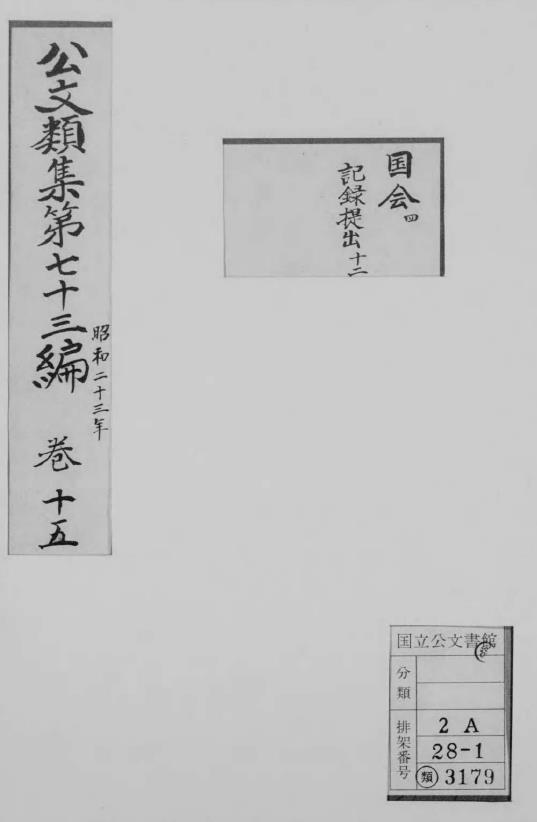 公文類集第七十三編 巻十五
昭和二十三年
国会四
記録提出十二
国立公文書館
分類
排架番号
2 A
28-1
類 3179